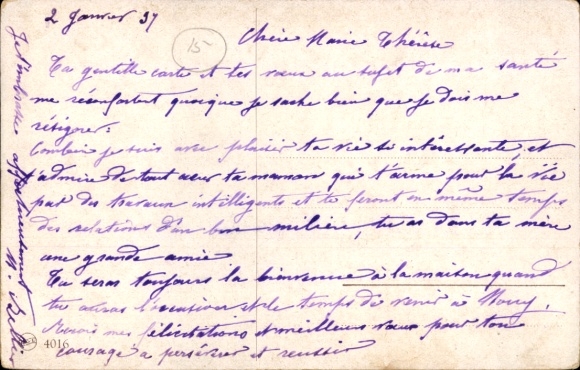 2 Janvier 37
15
Chère Marie Thérèse
Ta gentille carte et tes vœux au sujet de ma santé
me réconfortent quoique je sache bien que je dois me
résigner.
Combien je suis avec plaisir ta vie si intéressante, et
j'admire de tout cœur ta maman qui t'arme pour la vie
par des travaux intelligents et te feront en même temps
des relations d'un bon milieu, tu as dans ta mère
une grande amie
Tu seras toujours la bienvenue à la maison quand
tu auras l'occasion et le temps de venir à
Reçois mes félicitations et meilleurs vœux pour ton
courage à persévérer et réussir
Je t'embrasse affectueusement
M.
4016